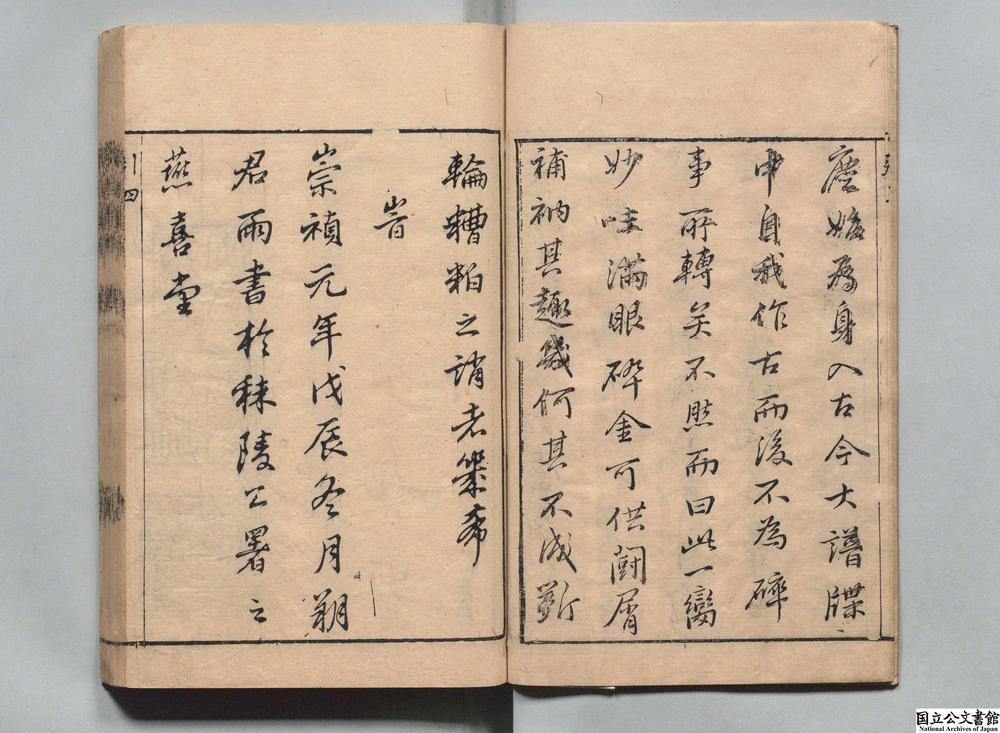 塵始為身入古今大譜牒
中自我作古而後不為碎
事所轉矣不然而曰此一臠
妙味滿眼碎金可供鬪屑
補衲其趣幾何其不成斲
輪糟粕之誚者幾希
崇禎元年戊辰冬月朔
君雨書於秣陵公署之
燕喜堂
引四
国立公文書館
National Archives of Japan